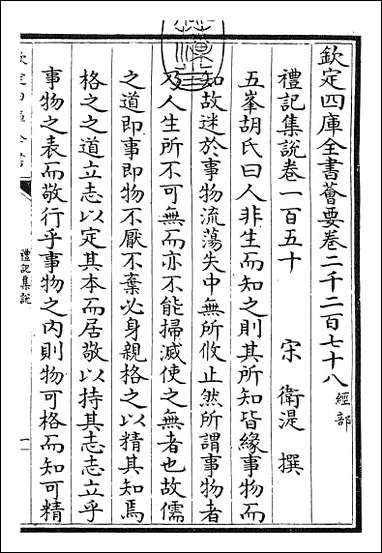 欽定四庫全書薈要卷二千二百七十八 經部
禮記集說卷一百五十 宋 衛湜 撰
五峯胡氏曰人非生而知之則其所知皆緣事物而
知故迷於事物流蕩失中無所攸止然所謂事物者
乃人生所不可無而亦不能掃滅使之無者也故儒
之道即事即物不厭不棄必身親格之以精其知焉
格之之道立志以定其本而居敬以持其志志立乎
事物之表而敬行乎事物之內則物可格而知可精
禮記集說
一